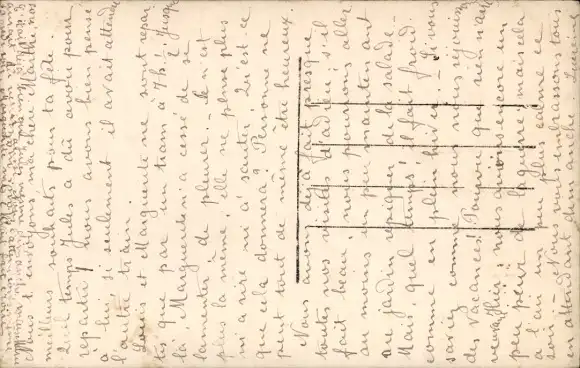 Nous t'envoyons, ma chère Marthe, nos
meilleurs souhaits pour ta fête.
Quel temps Jules a dû avoir pour
repartir! nous avons bien pensé
à lui, si seulement il avait attendu
l'autre train.
Louis et Marguerite ne sont repar
tis que par un train à 7h. Jusque
là, Marguerite n'a cessé de se
lamenter & de pleurer. Ce n'est
plus la même, elle ne pense plus
ni à rire ni à sauter! Qu'est ce
que cela donnera? Personne ne
peut tout de même être heureux.
Nous avons déjà fait presque
toutes nos visites d'adieu; s'il
fait beau, nous pourrons aller
au moins un peu maintenant
au jardin repiquer de la salade.
Mais quel temps! il fait froid
comme en plein hiver! Si vous
saviez comme nous nous réjouissons
des vacances! Pourvu que rien n'arrive
Hier, nous avons encore un
peu peur de la guerre; mais cela
a l'air un peu plus calme ce
soir. Nous vous embrassons tous
en attendant dimanche. Lucie